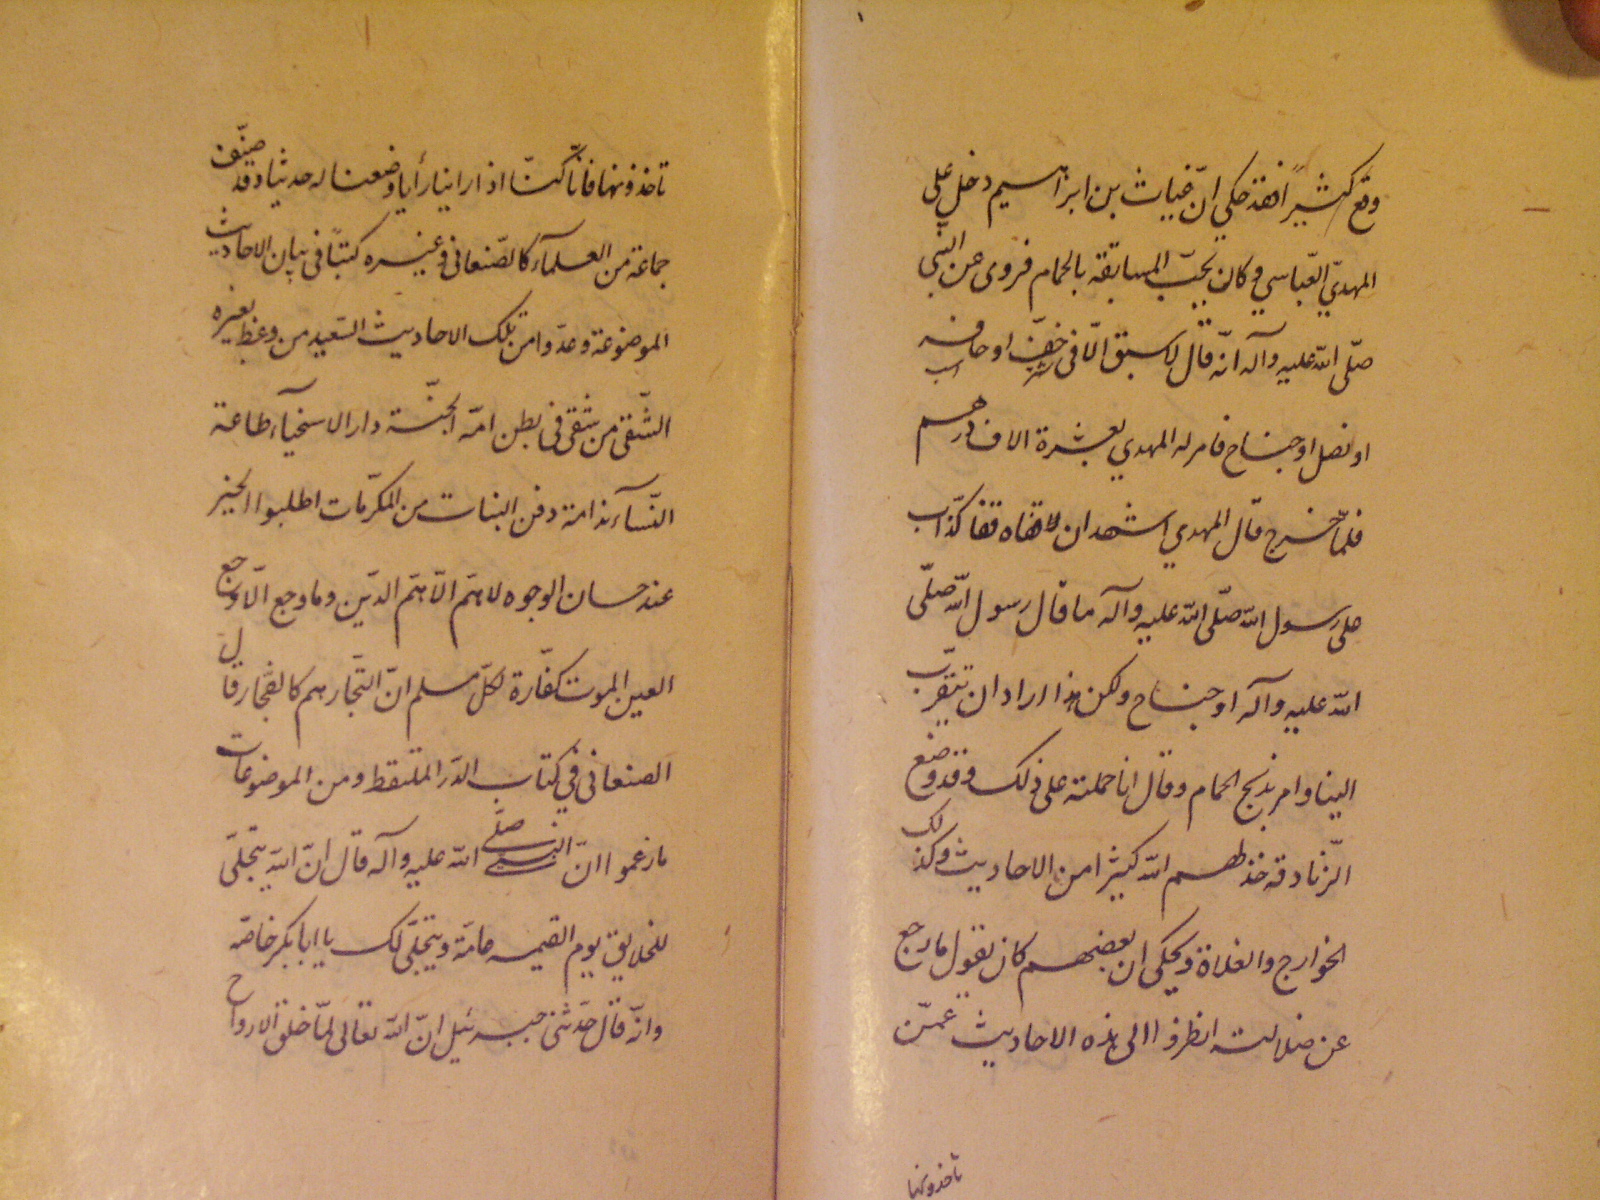 وقع كثيراً فقد حكي انّ غياث بن ابراهيم دخل على
المهديّ العبّاسي وكان يحبّ المسابقة بالحمام فروى عن النبي
صلّى الله عليه وآله انّه قال لا سبق الّا في خفّ او حافر
او نصل او جناح فامر له المهدي بعشرة الاف درهم
فلمّا خرج قال المهدي اشهد ان قفاه قفا كذّاب
على رسول الله صلّى الله عليه وآله ما قال رسول الله صلّى
الله عليه وآله او جناح ولكن هذا اراد ان يتقرّب
الينا وامر بذبح الحمام وقال انا حملته على ذلك وقد وضع
الزّنادقة خذلهم الله كثيرا من الاحاديث وكذلك
الخوارج والغلاة ويحكى ان بعضهم كان يقول ما رجع
عن ضلالته انظروا الى هذه الاحاديث عمّن
تأخذونها
تأخذونها فانّا كنّا اذا راينا رأيا وضعنا له حديثا وقد صنّف
جماعة من العلمآء كالصّنعاني وغيره كتباً في بيان الاحاديث
الموضوعة وعدّوا من تلك الاحاديث السّعيد من وعظ بغيره
الشّقي من شقي في بطن امّه الجنّة دار الاسخيآء طاعة
النّسآء ندامة دفن البنات من المكرّمات اطلبوا الخير
عند حسان الوجوه لا همّ الّا همّ الدّين وما وجع الّا وجع
العين الموت كفّارة لكلّ مسلم انّ التّجّار هم كالفجّار قال
الصنعاني في كتاب الدّر الملتقط ومن الموضوعات
ما زعموا انّ النبي صلّى الله عليه وآله قال انّ الله يتجلّى
للخلايق يوم القيمه عامّة ويتجلّى لك يا ابا بكر خاصّه
وانّه قال حدّثني جبرئيل انّ الله تعالى لمّا خلق الارواح